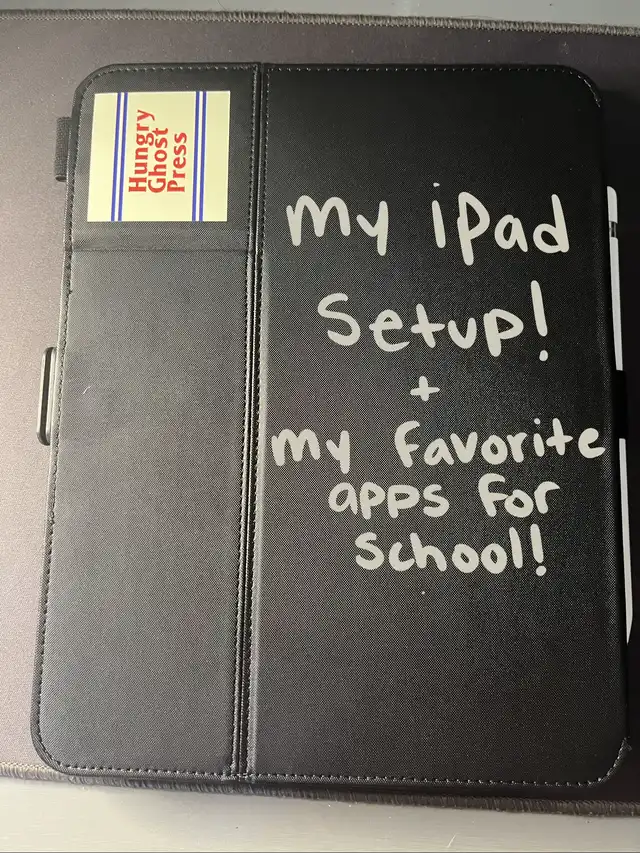 Hungry
Ghost
Press
my iPad
setup!
+
my favorite
apps for
school!